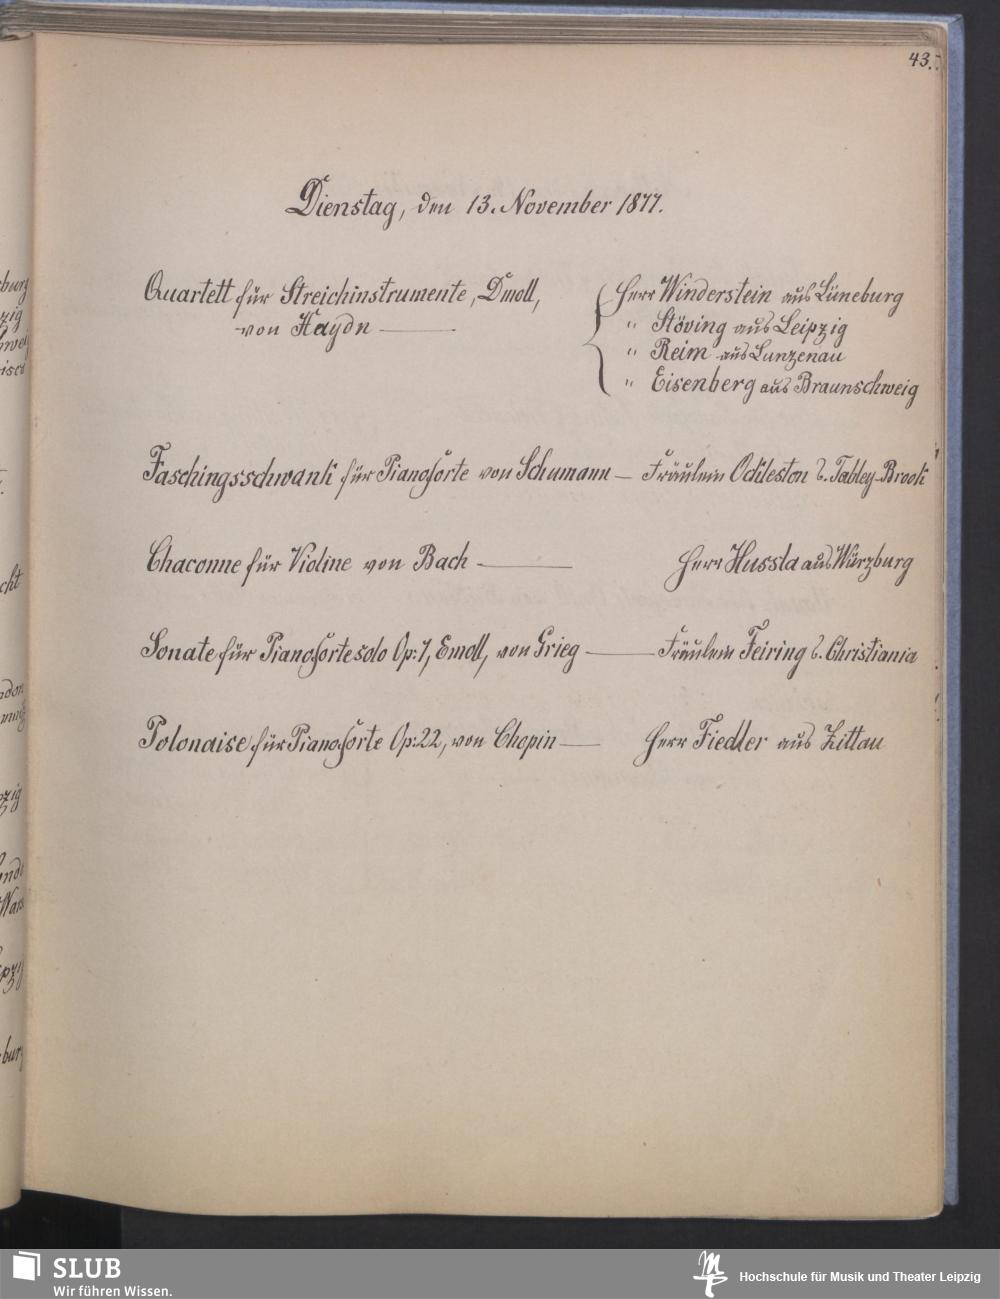 43.
Dienstag, den 13. November 1877.
Quartett für Streichinstrumente, Dmoll,
von Haydn
Herr Winderstein aus Lüneburg
" Stöving aus Leipzig
" Reim aus Lunzenau
" Eisenberg aus Braunschweig
Faschingsschwank für Pianoforte von Schumann — Fräulein Ockleston v. Tabley-Brook
Chaconne für Violine von Bach — Herr Hussla aus Würzburg
Sonate für Pianoforte solo Op: 7, Emoll, von Grieg — Fräulein Feiring v. Christiania
Polonaise für Pianoforte Op: 22, von Chopin — Herr Fiedler aus Zittau
SLUB
Wir führen Wissen.
Hochschule für Musik und Theater Leipzig